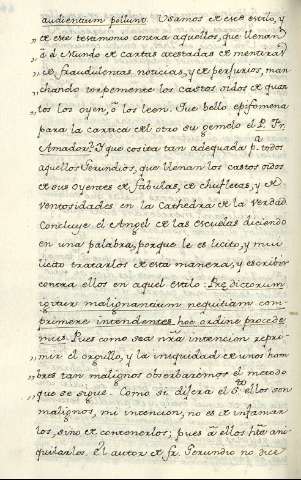 audientium polluunt. Usamos de este estilo, y
de este testimonio contra aquellos, que llenan
ā el Mundo de cartas atestadas de mentiras
de fraudulentas noticias, y de perjurios, man
chando torpemente los castos oidos de quan
tos los oyen, ō los leen. Que bello epifonema
para la cartica del otro su gemelo el P. Fr.
Amador! O que cosita tan adequada pª. todos
aquellos Gerundios, que llenan los castos oidos
de sus oyentes de fabulas, de chufletas, y de
ventosidades en la Cathedra de la Verdad
Concluye el Angel de las escuelas diciendo
en una palabra, porque le es licito, y mui
licito tratarlos de esta manera, y escribir
contra ellos en aquel estilo: Prædictorum
igitur malignantium nequitiam com-
primere intendentes hoc ordine procede
mus. Pues como sea nrā intencion repri-
mir el orgullo, y la iniquidad de unos hom
bres tan malignos observaremos el metodo
que se sigue. Como si dijera el Sto. ellos son
malignos, mi intencion, no es de infamar
los, sino de contenerlos; pues ā ellos hē ani
quilarlos. El autor de fr. Gerundio no dice